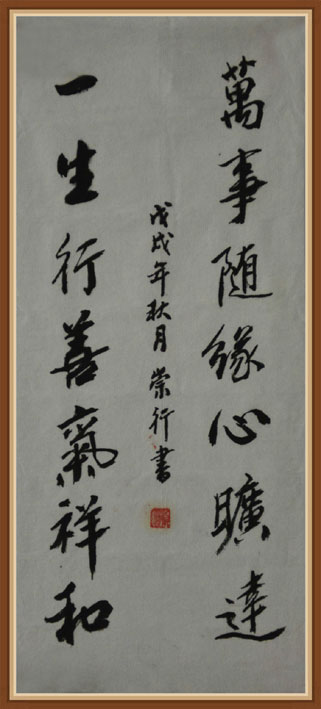 萬事随緣心曠達
一生行善氣祥和
戊戌年秋月崇行書